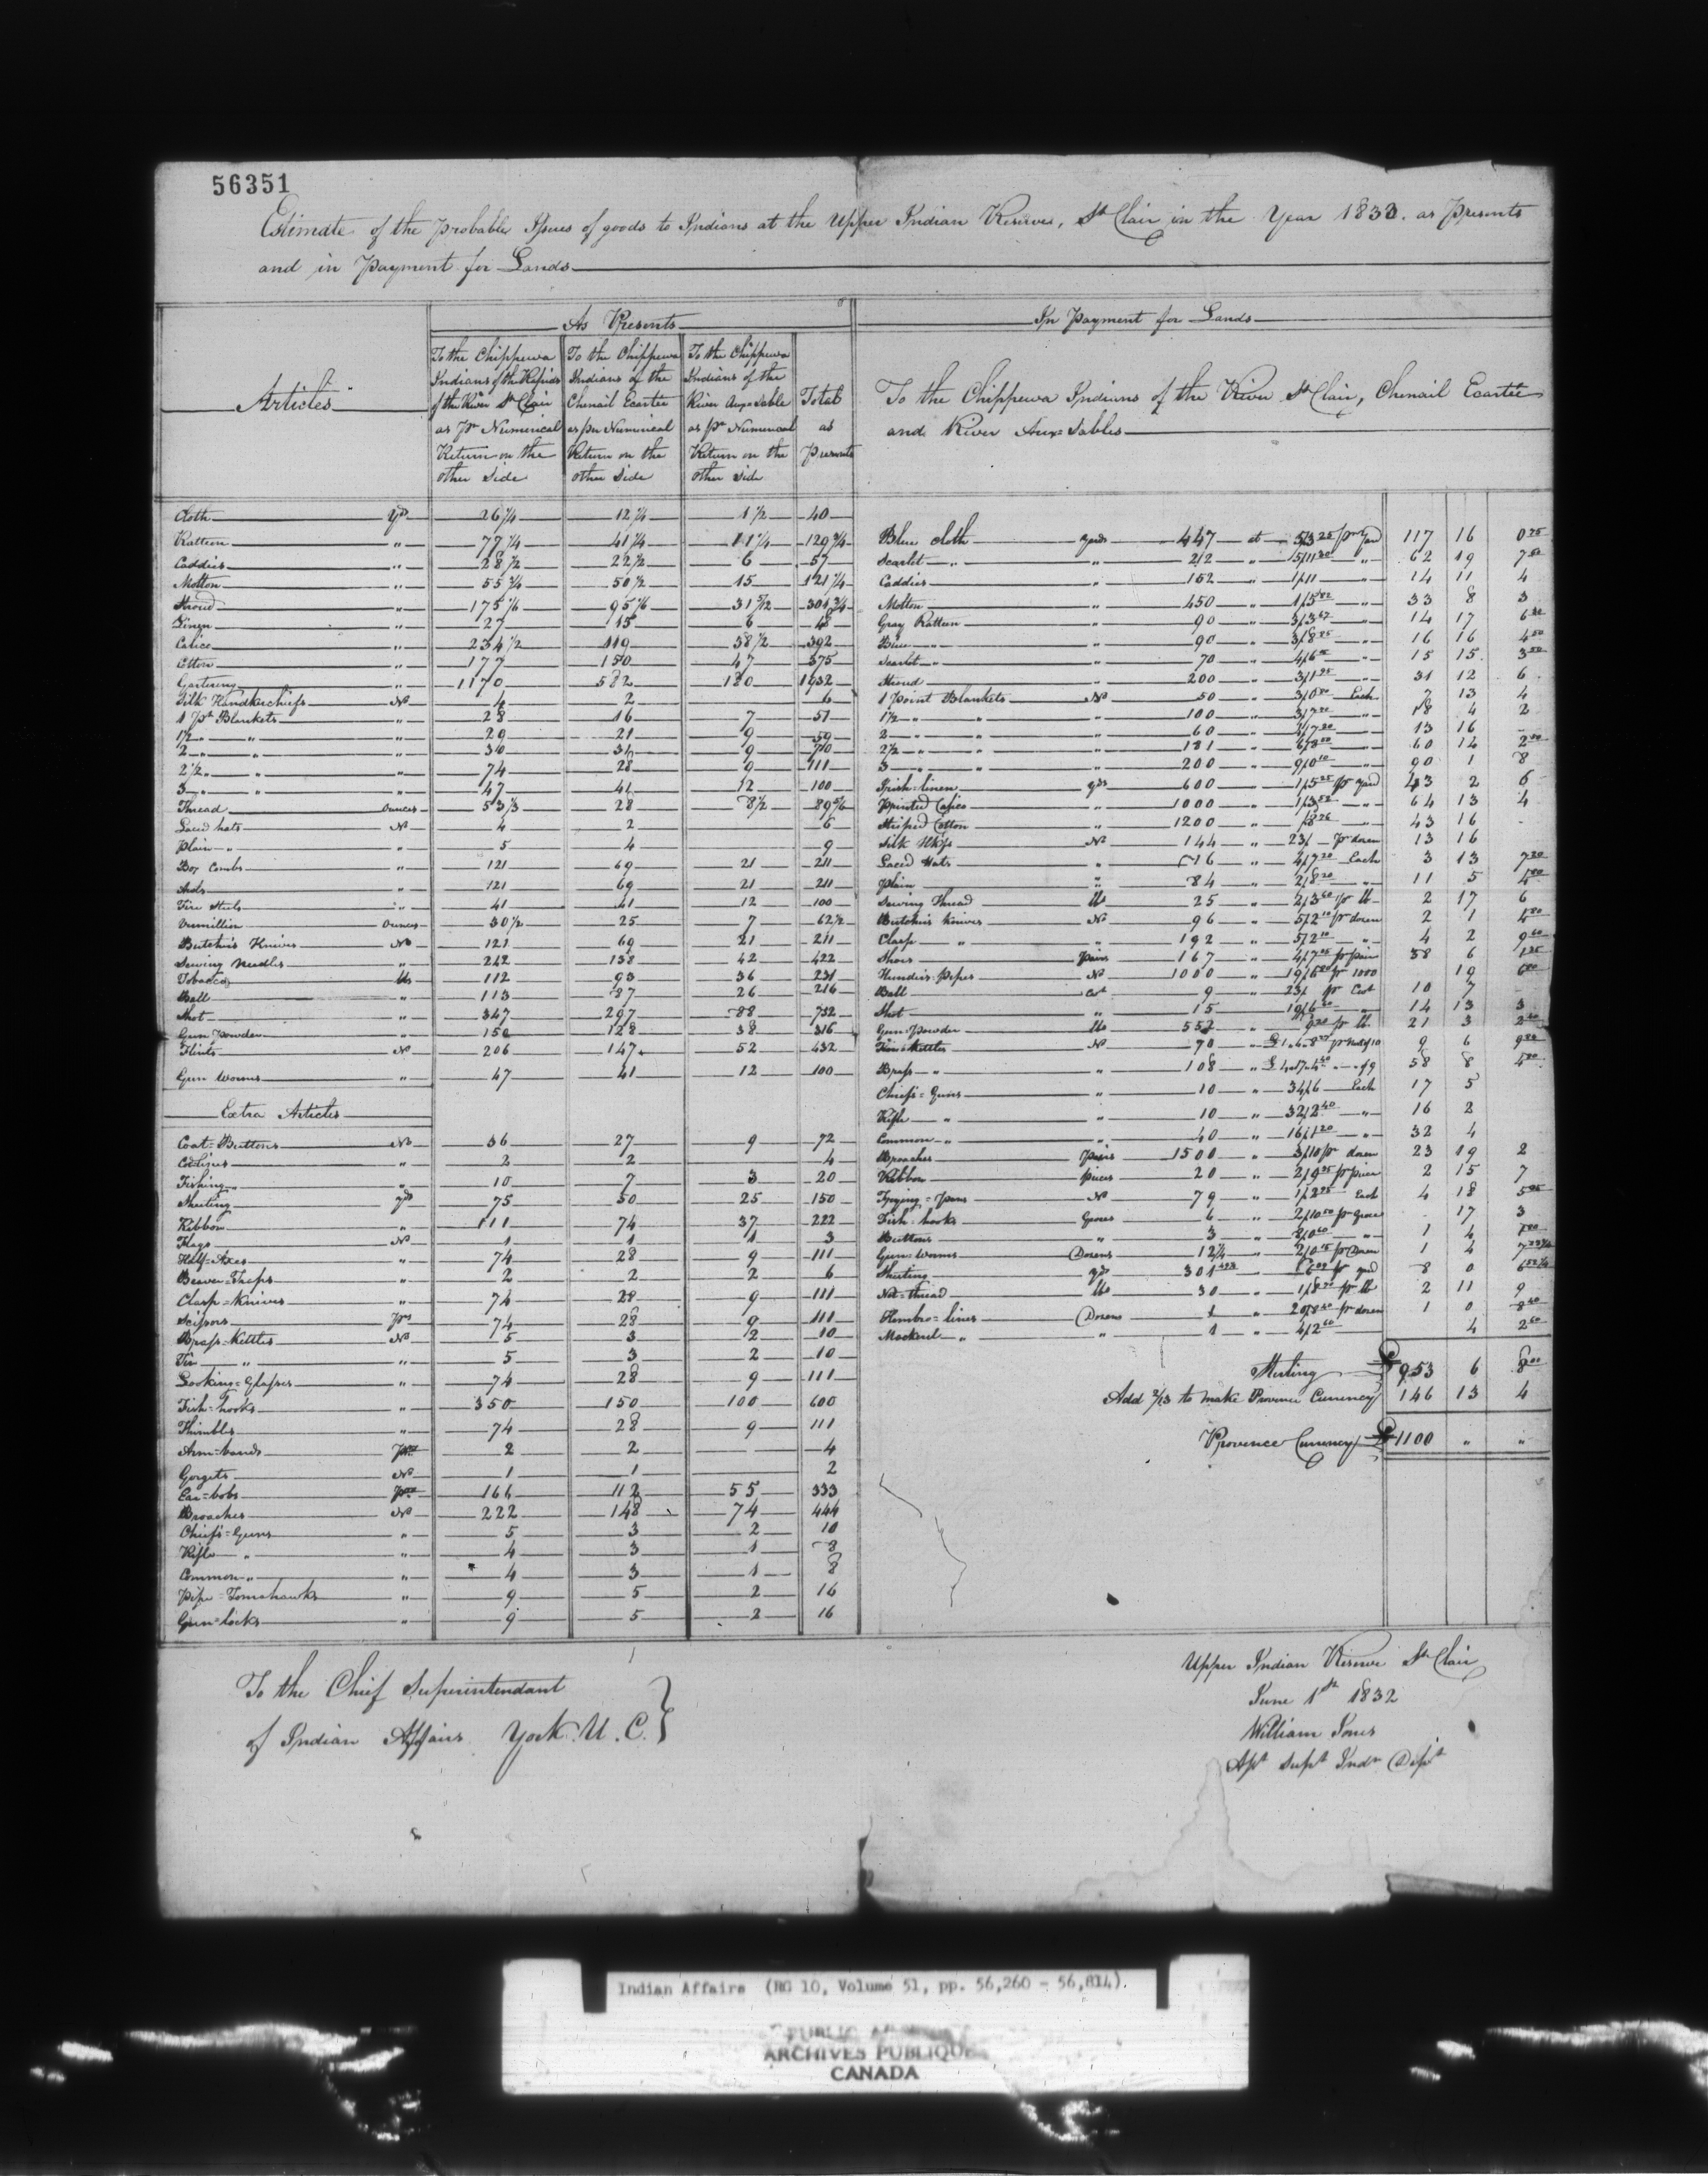 56351
Estimate of the probable Issues of goods to Indians at the Upper Indian Reserve, St Clair in the Year 1833. as Presents
and in Payment for Lands
Articles
As Presents
To the Chippewa Indians of the Rapids of the River St Clair as pr Numerical Return on the other Side
To the Chippewa Indians of the Chenail Ecartée as per Numerical Return on the other Side
To the Chippewa Indians of the River Aux-Sable as pr Numerical Return on the other side
Total as Presents
In Payment for Lands
To the Chippewa Indians of the River St Clair, Chenail Ecartée
and River Aux-Sables
Cloth yds 26 1/4 12 1/4 1 1/2 40
Ratteen " 77 1/4 41 1/4 11 1/4 129 3/4
Caddies " 28 1/2 22 1/2 6 57
Molton " 55 3/4 50 1/2 15 121 1/4
Stroud "
Linen " 27 15 6 48
Calico " 234 1/2 119 38 1/2 392
Cotton " 177 150 47 375
Gartering " 1170 582 180 1932
Silk Handkerchiefs No 4 2 6
1 Pt Blankets " 28 16 7 51
1 1/2 " " " 29 21 9 59
2 " " " 30 9 70
2 1/2 " " " 74 28 9 111
3 " " " 47 41 12 100
Thread Ounces 53 1/3 28 8 1/2 89 5/6
Laced hats No 4 2 6
Plain " " 5 4 9
Box Combs " 121 69 21 211
Awls " 121 69 21 211
Fire Steels " 41 41 12 100
Vermillion Ounces 30 1/2 25 7 62 1/2
Butchers Knives No 121 69 21 211
Sewing Needles " 242 138 42 422
Tobacco lbs 112 93 36 231
Ball " 113 87 26 216
Shot " 347 297 88 732
Gun Powder " 150 128 38 316
Flints No 206 147 52 432
Gun Worms " 47 41 12 100
Extra Articles
Coat-Buttons No 36 27 9 72
Codlines " 2 2 4
Fishing " " 10 7 3 20
Sheeting yds 75 50 25 150
Ribbon " 111 74 37 222
Flags No 1 1 1 3
Half-Axes " 74 28 9 111
Beaver-Traps " 2 2 2 6
Clasp-Knives " 74 28 9 111
Scissors prs 74 28 9 111
Brass-Kettles No 5 3 2 10
Tin " " 5 3 2 10
Looking-Glasses " 74 28 9 111
Fish-hooks " 350 150 100 600
Thimbles " 74 28 9 111
Arm-bands prs 2 2 4
Gorgets No 1 1 2
Ear-bobs prs 166 112 55 333
Broaches No 222 148 74 444
Chiefs-Guns " 5 3 2 10
Rifle " " 4 3 1 8
Common " " 4 3 1 8
Pipe-Tomahawks " 9 5 2 16
Gun-locks " 9 5 2 16
Blue Cloth yards 447 at 5/3 25 pr yard 117 16 0 75
Scarlet " " 212 " 5/11 30 " 62 19 7 50
Caddies " 152 " 1/11 " 14 11 4
Molton " 450 " 1/5 82 " 33 8 3
Gray Ratteen " 90 " 3/3 67 " 14 17 6 30
Blue " " 90 " 3/8 85 " 16 16 4 50
Scarlet " " 70 " 4/6 " 15 15 3 50
Stroud " 200 " 3/1 95 " 31 12 6
1 Point Blankets No 50 " 3/0 80 Each 7 13 4
1 1/2 " " " 100 " 3/7 " 18 4 2
2 " " " 60 " 4/7 20 " 13 16
2 1/2 " " " 181 " 6/8 " 60 14
3 " " " 200 " 9/0 10 " 90 1 8
Irish-linen yds 600 " 1/5 25 pr yard 43 2 6
Printed Calico " 1000 " 1/3 52 " 64 13 4
Striped Cotton " 1200 " /8 76 " 43 16
Silk Hkfs No 144 " 23/ pr dozen 13 16
Laced Hats " 16 " 4/7 20 Each 3 13 7 20
Plain " 84 " 2/8 20 " 11 5 4 80
Sewing Thread lbs 25 " 2/3 60 pr lb 2 17 6
Butchers Knives No 96 " 5/2 10 pr dozen 2 1 4 80
Clasp " " 192 " 5/2 10 " 4 2 9 60
Shoes Pairs 167 " 4/7 pr pair 38 6
Hundrs. Pipes No 1000 " 19/6 pr 1000 19 6
Ball Cwt 9 " 23/ pr Cwt 10 7
Shot " 15 " 19/6 20 " 14 13 3
Gun Powder lbs 552 " 9 20 pr lb 21 3 2 40
Tin Kettles No 70 " £1.6.8 pr nest of 10 9 6
Brass " " 108 " of 9 58 8 4 80
Chiefs-Guns " 10 " 34/6 Each 17 5
Rifle " " 10 " 32/2 40 " 16 2
Common " " 40 " 16/1 20 " 32 4
Broaches Pairs 1500 " 3/10 pr dozen 23 19 2
Ribbon pieces 20 " 2/9 35 pr piece 2 15 7
Frying-Pans No 79 " 1/2 95 Each 4 18 5
Fish-hooks Gross 6 " 2/10 50 pr Gross 17 3
Buttons " 3 " 8/0 60 " 1 4
Gun-Worms Dozens 12 1/4 " 2/0 15 pr Dozen 1 4
Sheeting yds 301 " /6 pr yard 8 0
Net-thread lbs 30 " 1/8 70 pr lb 2 11 9
Hambro-lines Dozen 1 " 20/8 40 pr dozen 1 0 8 40
Mackerel " " 1 " 4/2 60 4 2 60
Sterling £953 6 8
Add 2/13 to make Province Currency 146 13 4
Province Currency £1100 " "
To the Chief Superintendant
of Indian Affairs York U. C.
Upper Indian Reserve St Clair
June 1st 1832
William Jones
Asst Supt Indn Dept
Indian Affairs (RG 10, Volume 51, pp. 56,260 - 56,814).
PUBLIC
ARCHIVES PUBLIQUES
CANADA